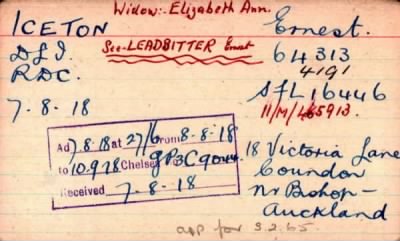 Widow:- Elizabeth Ann.
ICETON Ernest.
See LEADBITTER Ernest
D.L.I. 64313
R.D.C. 4191
SFL 16446
7-8-18 11/M/465913.
Ad 7.8.18 at 27/6 from 8-8-18
to 10.9.18 Chelsea GP3C
Received 7-8-18
18 Victoria Lane
Coundon
Nr Bishop-
Auckland
app for 3.2.65